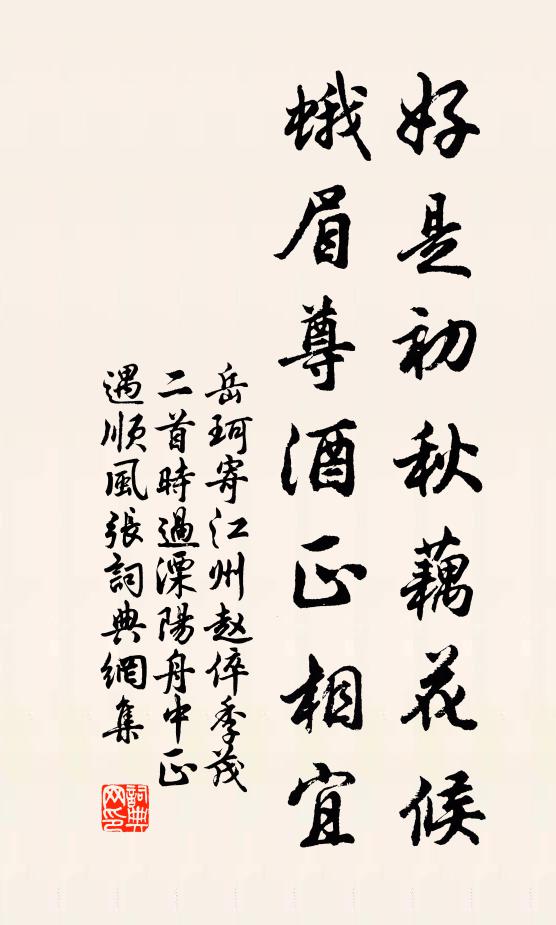 好是初秋藕花候
蛾眉尊酒正相宜
岳珂寄江州赵倅季茂
二首時過溧陽舟中正
遇順風張詞典網集
詞典
网印